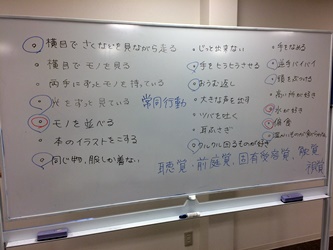 横目でさくなどを見ながら走る
横目でモノを見る
両手にずっとモノを持っている
光をずっと見ている
常同行動
モノを並べる
本のイラストをこする
同じ物、服しか着ない
じっと出来ない
手をヒラヒラさせる
おうむ返し
大きな声を出す
ツバを吐く
耳ふさぎ
クルクル回るものが好き
手をなめる
逆手バイバイ
頭をぶつける
高い所が好き
水が好き
偏食
聴覚、前庭覚、固有受容覚、触覚
視覚